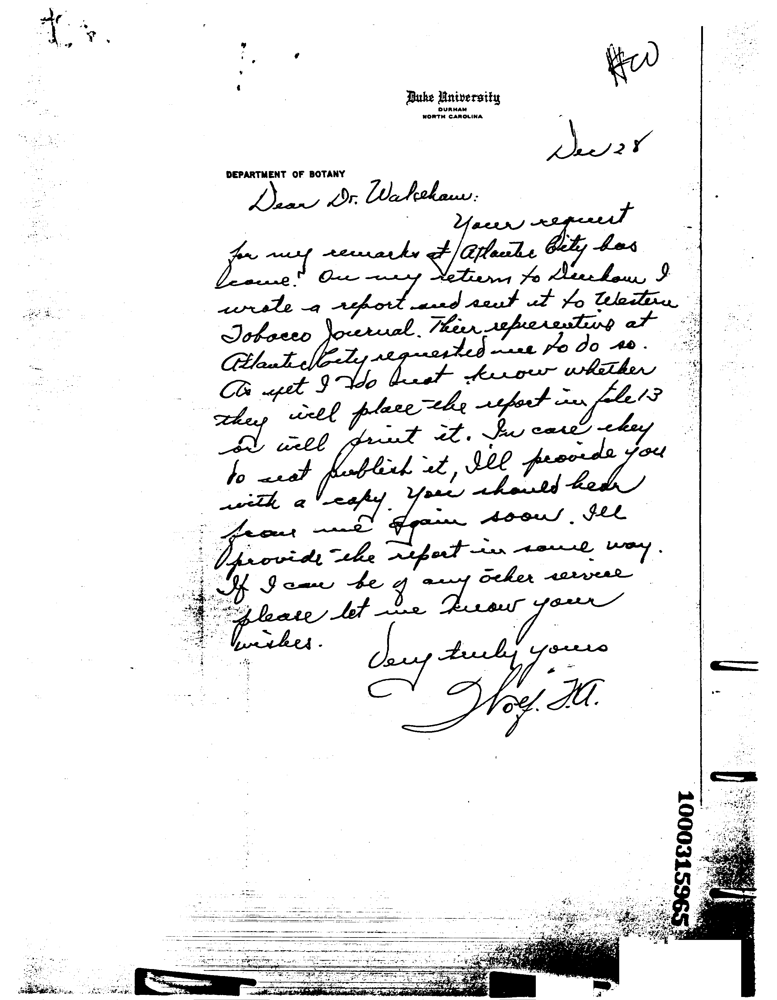 Duke University
DURHAM
NORTH CAROLINA
Dec 28
DEPARTMENT OF BOTANY
Dear Dr. Wakeham:
Your request
for my remarks at Atlantic City has
come. On my return to Durham I
wrote a report and sent it to Western
Tobacco Journal. Their representive at
Atlantic City requested me to do so.
As yet I do not know whether
they will place the report in file 13
or will print it. In case they
do not publish it, I'll provide you
with a copy. You should hear
from me again soon. I'll
provide the report in some way.
If I can be of any other service
please let me know your
wishes.
Very truly yours
Wolf. F.A.
1000315965